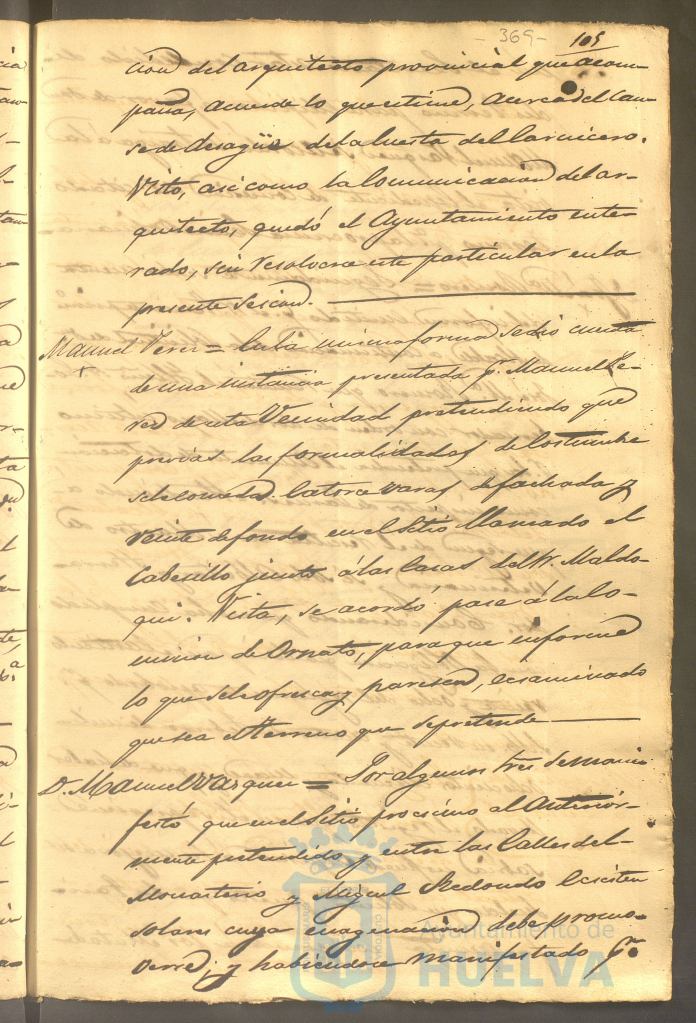 - 369 -
105
cion del arquitecto provincial que acom-
paña, acuerde lo que estime, acerca del cau-
se de desagüe de la Cuesta del Carnicero.
Visto, asi como la Comunicacion del ar-
quitecto, quedó el Ayuntamiento ente-
rado, sin resolverse este particular en la
presente Sesion.
Manuel Perez = En la misma forma se dió cuenta
de una instancia presentada pr. Manuel Pe-
rez de esta Vecindad pretendiendo que
previas las formalidades de Costumbre
se le conceda catorce varas de fachada y
veinte de fondo en el Sitio llamado el
Cabesillo junto á las Casas del Sr. Maldo-
qui. Vista, se acordó pase á la Co-
mision de Ornato, para que informe
lo que se le ofresca y paresca, ecsaminado
que sea el terreno que se pretende
D. Manuel Vazquez = Por algunos Sres. se mani-
festó que en el Sitio procsimo al anterior-
mente pretendido y entre las Calles del
Monasterio y Miguel Redondo ecsisten
solares cuya enagenacion debe promo-
verse; y habiendose manifestado pr.
Ayuntamiento de
HUELVA